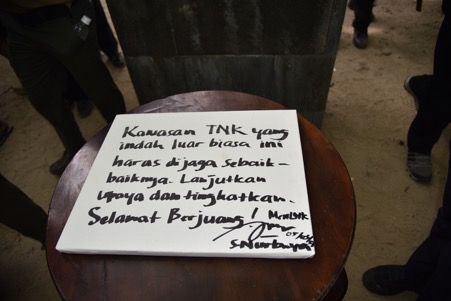 Kawasan TNK yang
indah luar biasa ini
harus dijaga sebaik-
baiknya. Lanjutkan
upaya dan tingkatkan.
Selamat Berjuang! MenLHK